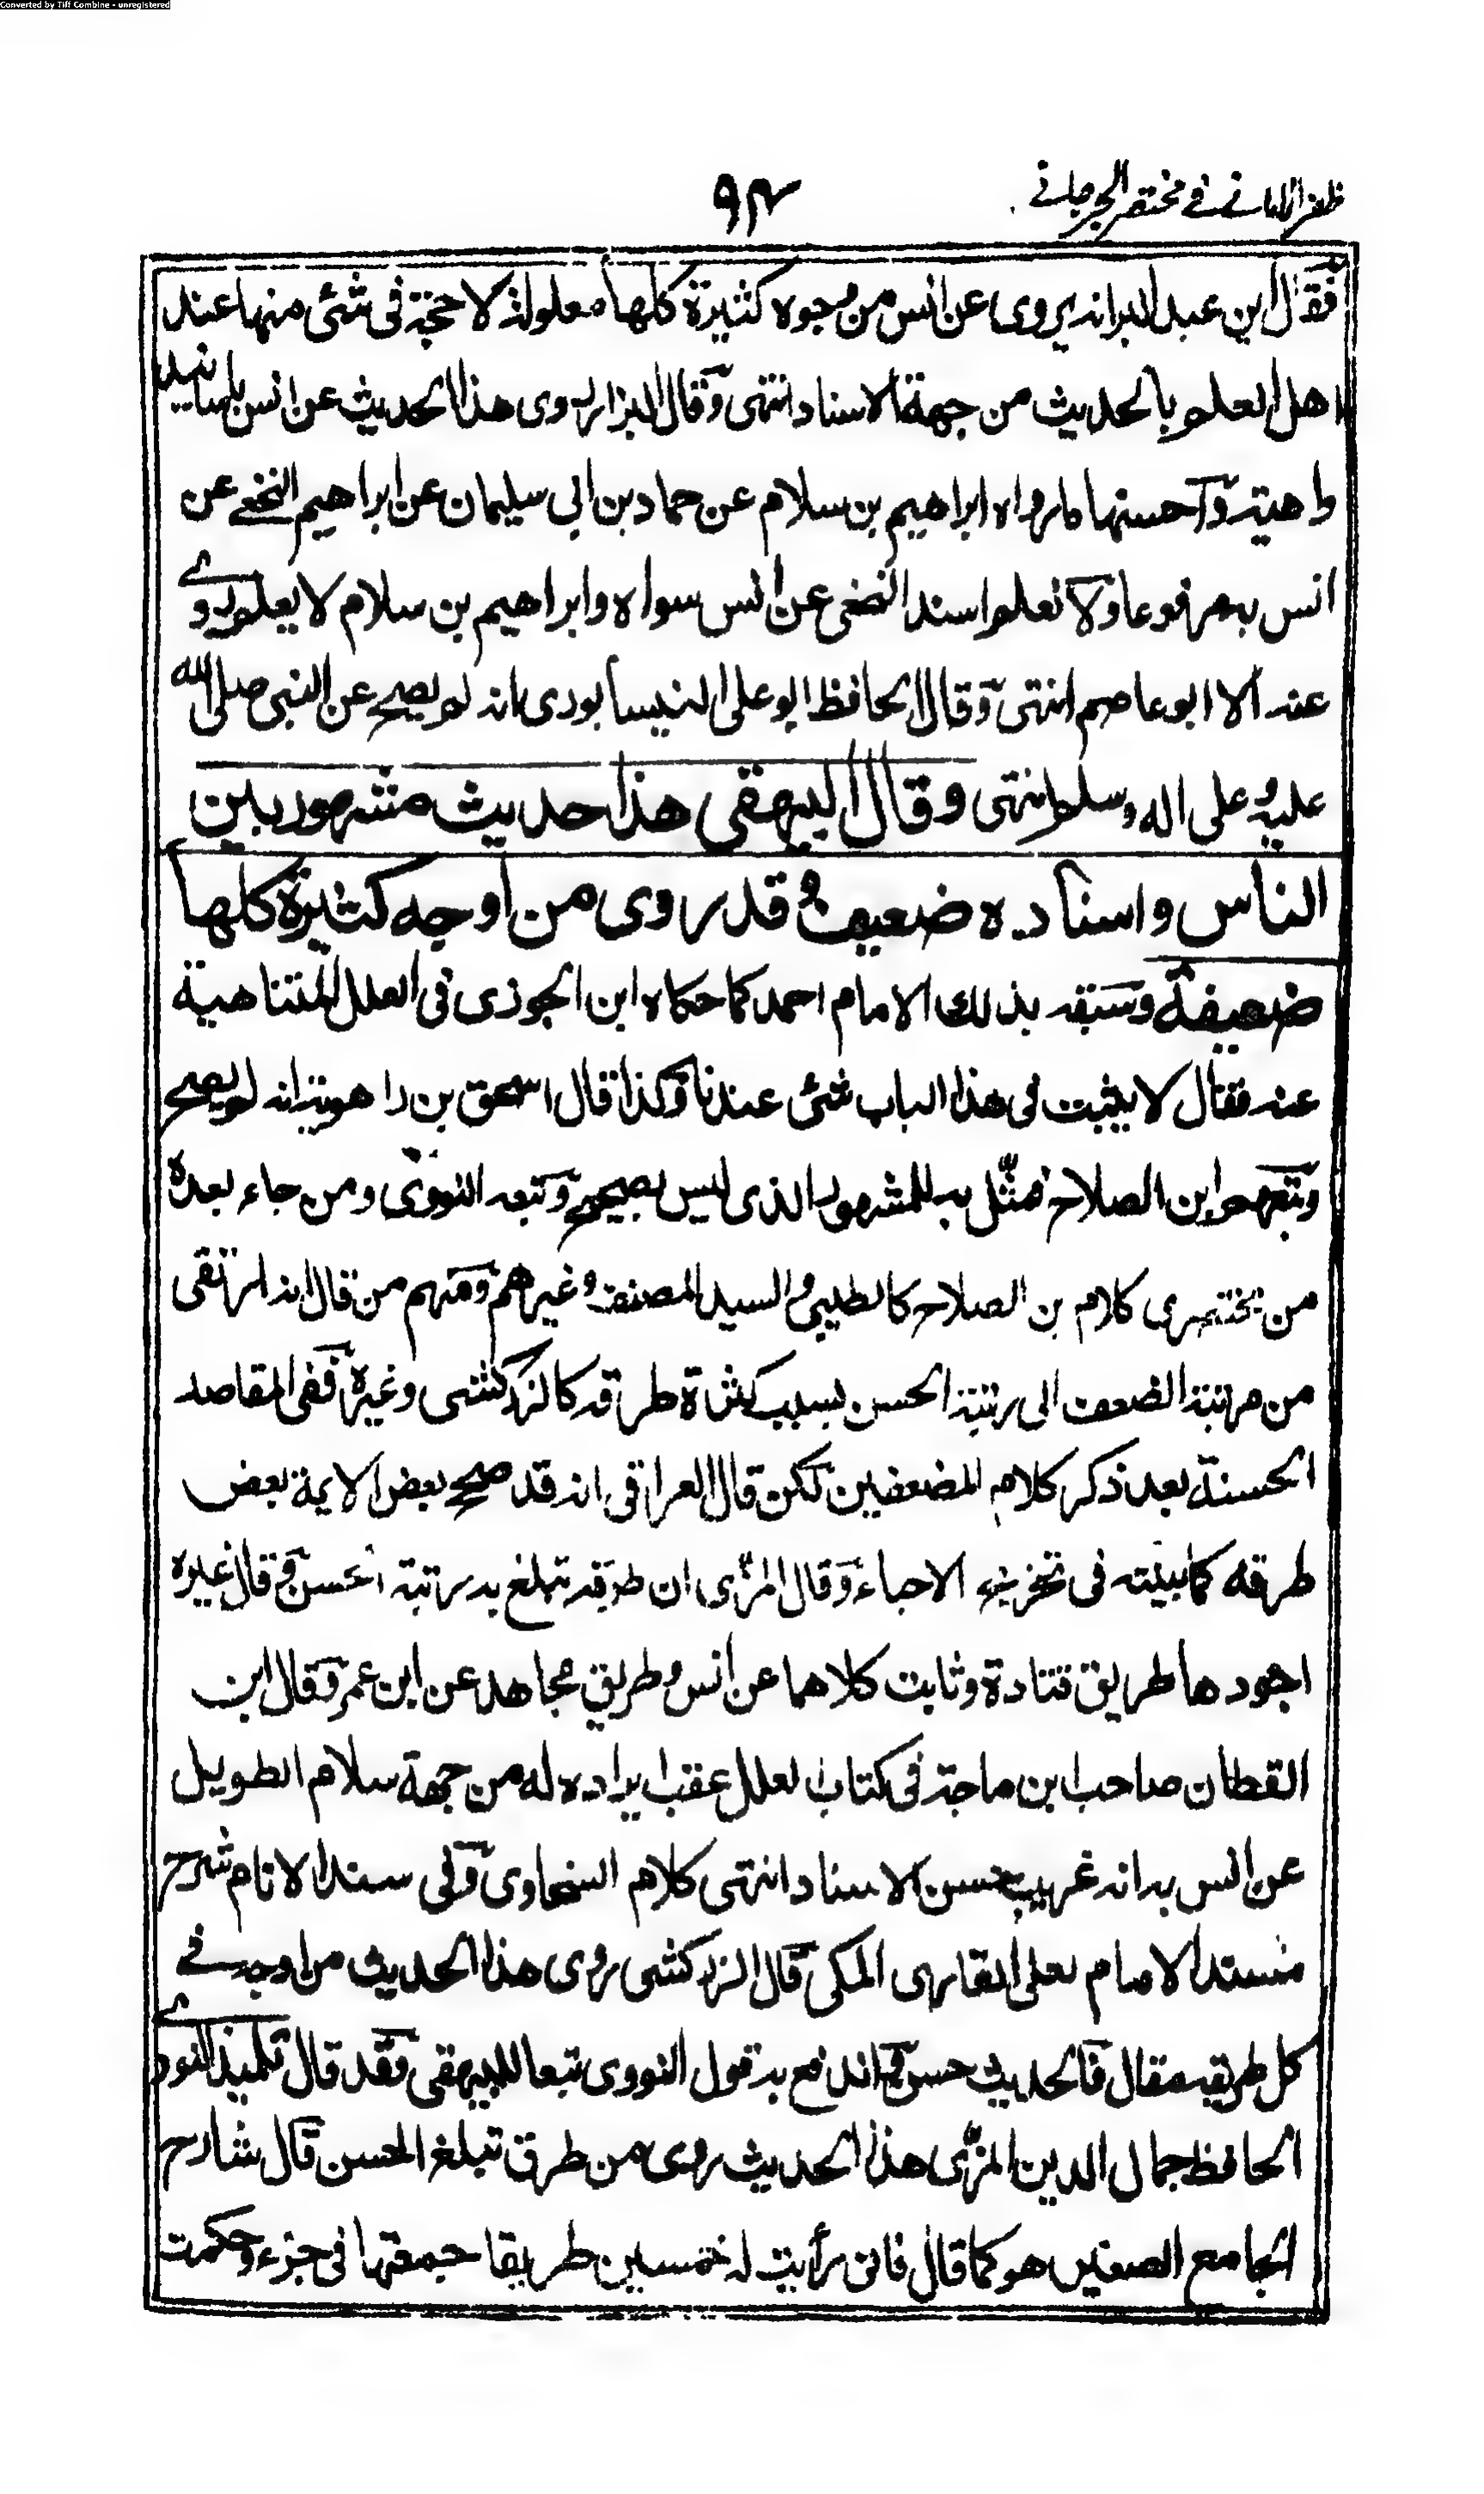 Converted by Tiff Combine - unregistered
ظفر الامانی فی مختصر الجرجانی
٩٤
فقال ابن عبد البر انه يروى عن انس من وجوه كثيرة كلها معلولة لا حجة فى شئ منها عند
اهل العلم بالحديث من جهة الاسناد انتهى وقال البزار روى هذا الحديث عن انس باسانيد
واهية وآحسنها ما رواه ابراهيم بن سلام عن حماد بن ابى سليمان عن ابراهيم النخعے عن
انس به مرفوعا ولا نعلم اسند النخعى عن انس سواه وابراهيم بن سلام لا يعلم روے
عنه الا ابو عاصم انتهى وقال الحافظ ابو على النيسابورى انه لم يصح عن النبى صلى الله
عليه وعلى اله وسلم انتهى وقال البيهقى هذا حديث مشهور بين
الناس واسناده ضعيف وقد روى من اوجه كثيرة كلها
ضعيفة وسبقه بذلك الامام احمد كما حكاه ابن الجوزى فى العلل المتناهية
عنه فقال لا يثبت فى هذا الباب شئ عندنا وكذا قال اسحق بن راهويه انه لم يصح
وتبعهم ابن الصلاح فمثّل به للمشهور الذى ليس بصحيح وتبعه النووى ومن جاء بعده
من مختصرى كلام بن الصلاح كالطيبى والسيد المصنف وغيرهم ومنهم من قال انه ارتقى
من مرتبة الضعف الى رتبة الحسن بسبب كثرة طرقه كالزركشى وغيره ففى المقاصد
الحسنة بعد ذكر كلام المضعفين لكن قال العراقى انه قد صحح بعض الايمة بعض
طرقه كما بينته فى تخريج الاحياء وقال المزّى ان طرقه تبلغ به رتبة الحسن وقال غيره
اجودها طريق قتادة وثابت كلاهما عن انس وطريق مجاهد عن ابن عمر وقال ابن
القطان صاحب ابن ماجة فى كتاب العلل عقب ايراده له من جهة سلام الطويل
عن انس به انه غريب حسن الاسناد انتهى كلام السخاوى وفى سند الانام شرح
مسند الامام لعلى القارى المكى قال الزركشى روى هذا الحديث من اوجه فے
كل طريقه مقال فالحديث حسن اندفع به قول النووى تبعا للبيهقى فقد قال تلميذ النووے
الحافظ جمال الدين المزّى هذا الحديث روى من طرق تبلغ الحسن قال شارح
الجامع الصغير هو كما قال فانى رأيت له خمسين طريقا جمعتها فى جزء وحكمت